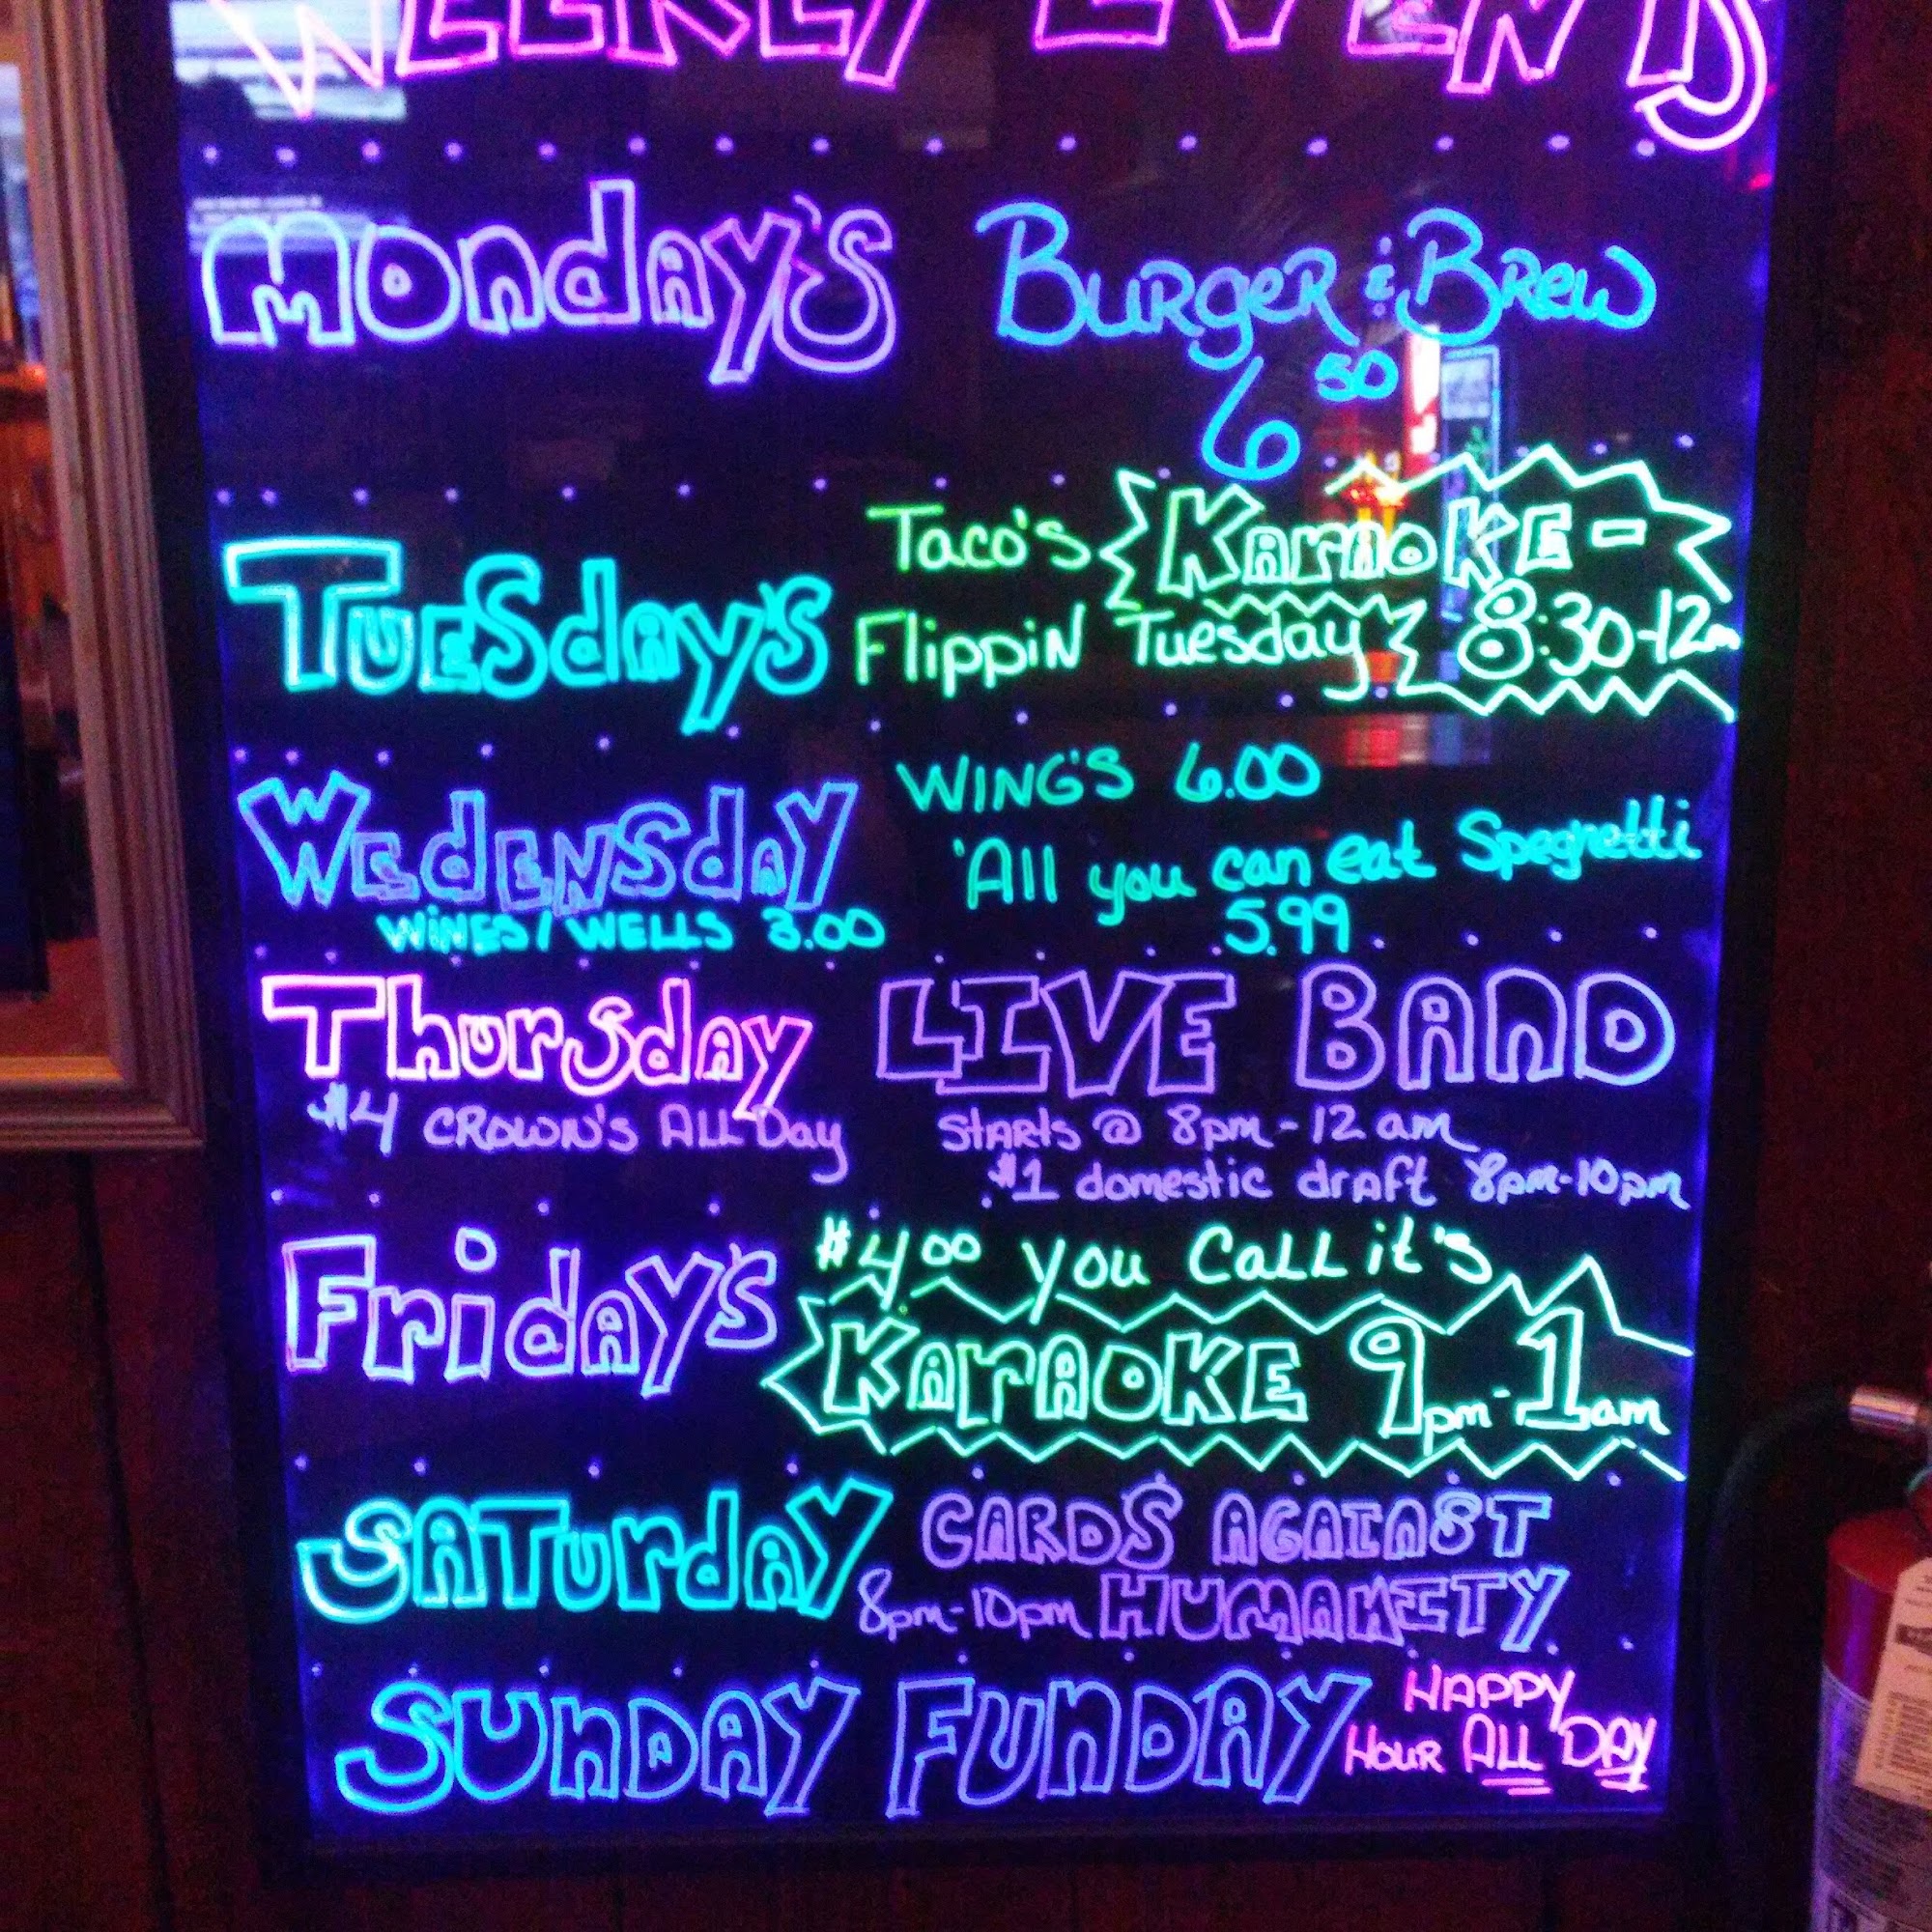 WEEKLY EVENTS
Monday's Burger & Brew
6 50
Tuesday's Taco's Karaoke -
Flippin Tuesday 8:30-12am
Wedensday WING'S 6.00
'All you can eat Spegnetti
WINES / WELLS 3.00 5.99
Thursday LIVE BAND
$4 CROWN'S ALL Day Starts @ 8pm - 12 am
$1 domestic draft 8pm-10pm
Friday's $4 00 you Call it's
KaraoKE 9pm - 1am
Saturday CARDS AGAINST
8pm-10pm HUMANITY
SUNDAY FUNDAY HAPPY
Hour ALL DAY